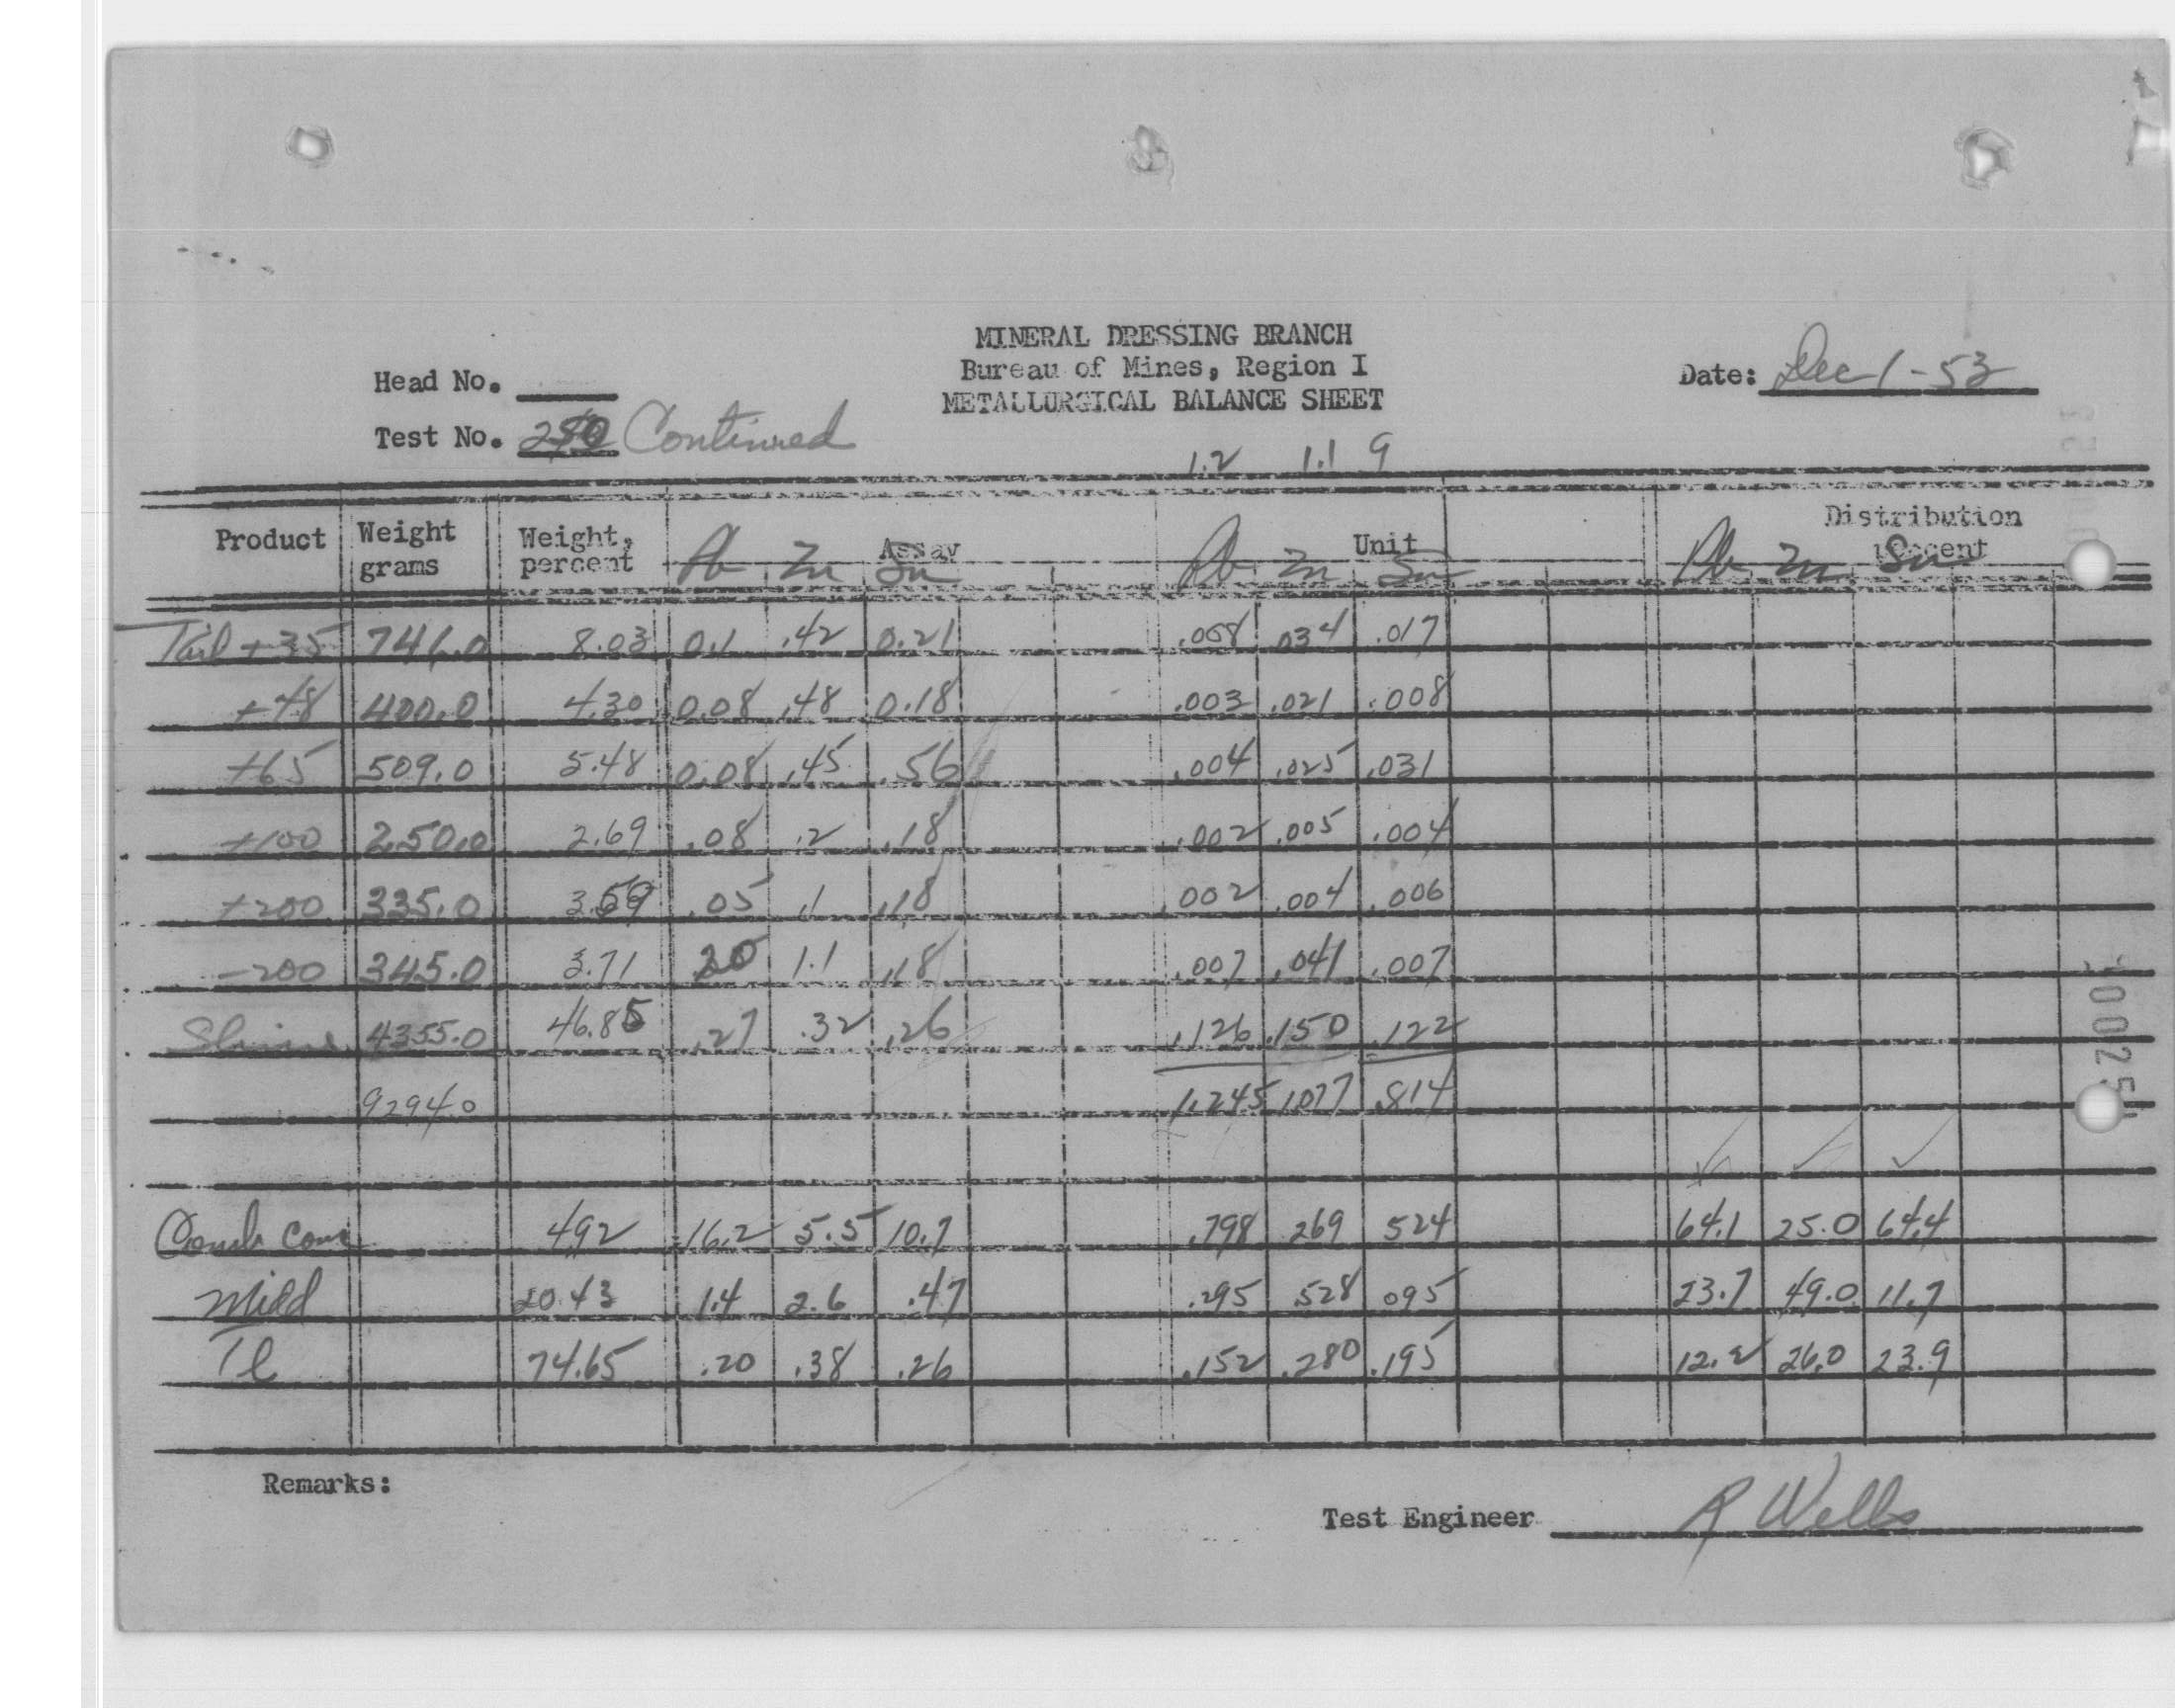 MINERAL DRESSING BRANCH
Bureau of Mines, Region I
METALLURGICAL BALANCE SHEET
Head No.
Date: Dec 1-53
Test No. Continued
1.2 1.1 9
Product Weight grams Weight, percent Assay Unit Distribution percent
Pb Zn Sn Pb Zn Sn Pb Zn Sn
Tail +35 746.0 8.03 0.1 .42 0.21 .008 .034 .017
+48 400.0 4.30 0.08 .48 0.18 .003 .021 .008
+65 509.0 5.48 0.08 .45 .56 .004 .025 .031
+100 250.0 2.69 .08 .2 .18 .002 .005 .004
+200 335.0 3.59 .05 .1 .18 .002 .004 .006
-200 345.0 3.71 .20 1.1 .18 .007 .041 .007
Slime 4355.0 46.85 .27 .32 .26 .126 .150 .122
9294.0 1.245 1.077 .814
Comb Conc 4.92 16.2 5.5 10.7 .798 269 524 64.1 25.0 64.4
Midd 20.43 1.4 2.6 .47 .295 528 095 23.7 49.0 11.7
Tl 74.65 .20 .38 .26 .152 .280 .195 12.2 26.0 23.9
Remarks:
Test Engineer R Wells